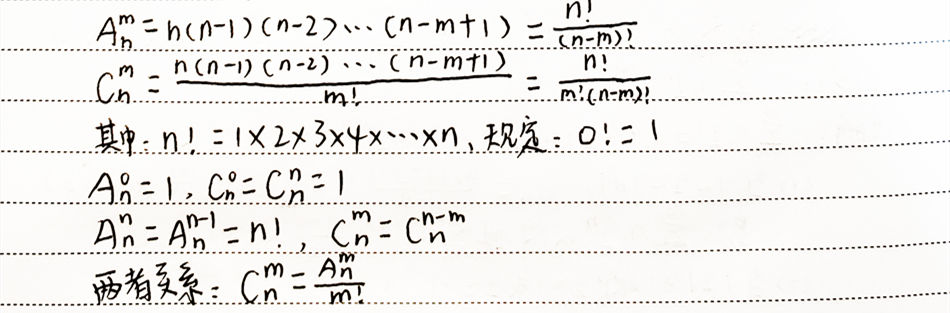 Aₙᵐ = n(n-1)(n-2)…(n-m+1) = n!/(n-m)!
Cₙᵐ = n(n-1)(n-2)…(n-m+1)/m! = n!/m!(n-m)!
其中: n! = 1×2×3×4×…×n, 规定: 0! = 1
Aₙ⁰ = 1, Cₙ⁰ = Cₙⁿ = 1
Aₙⁿ = Aₙⁿ⁻¹ = n!, Cₙᵐ = Cₙⁿ⁻ᵐ
两者关系: Cₙᵐ = Aₙᵐ/m!